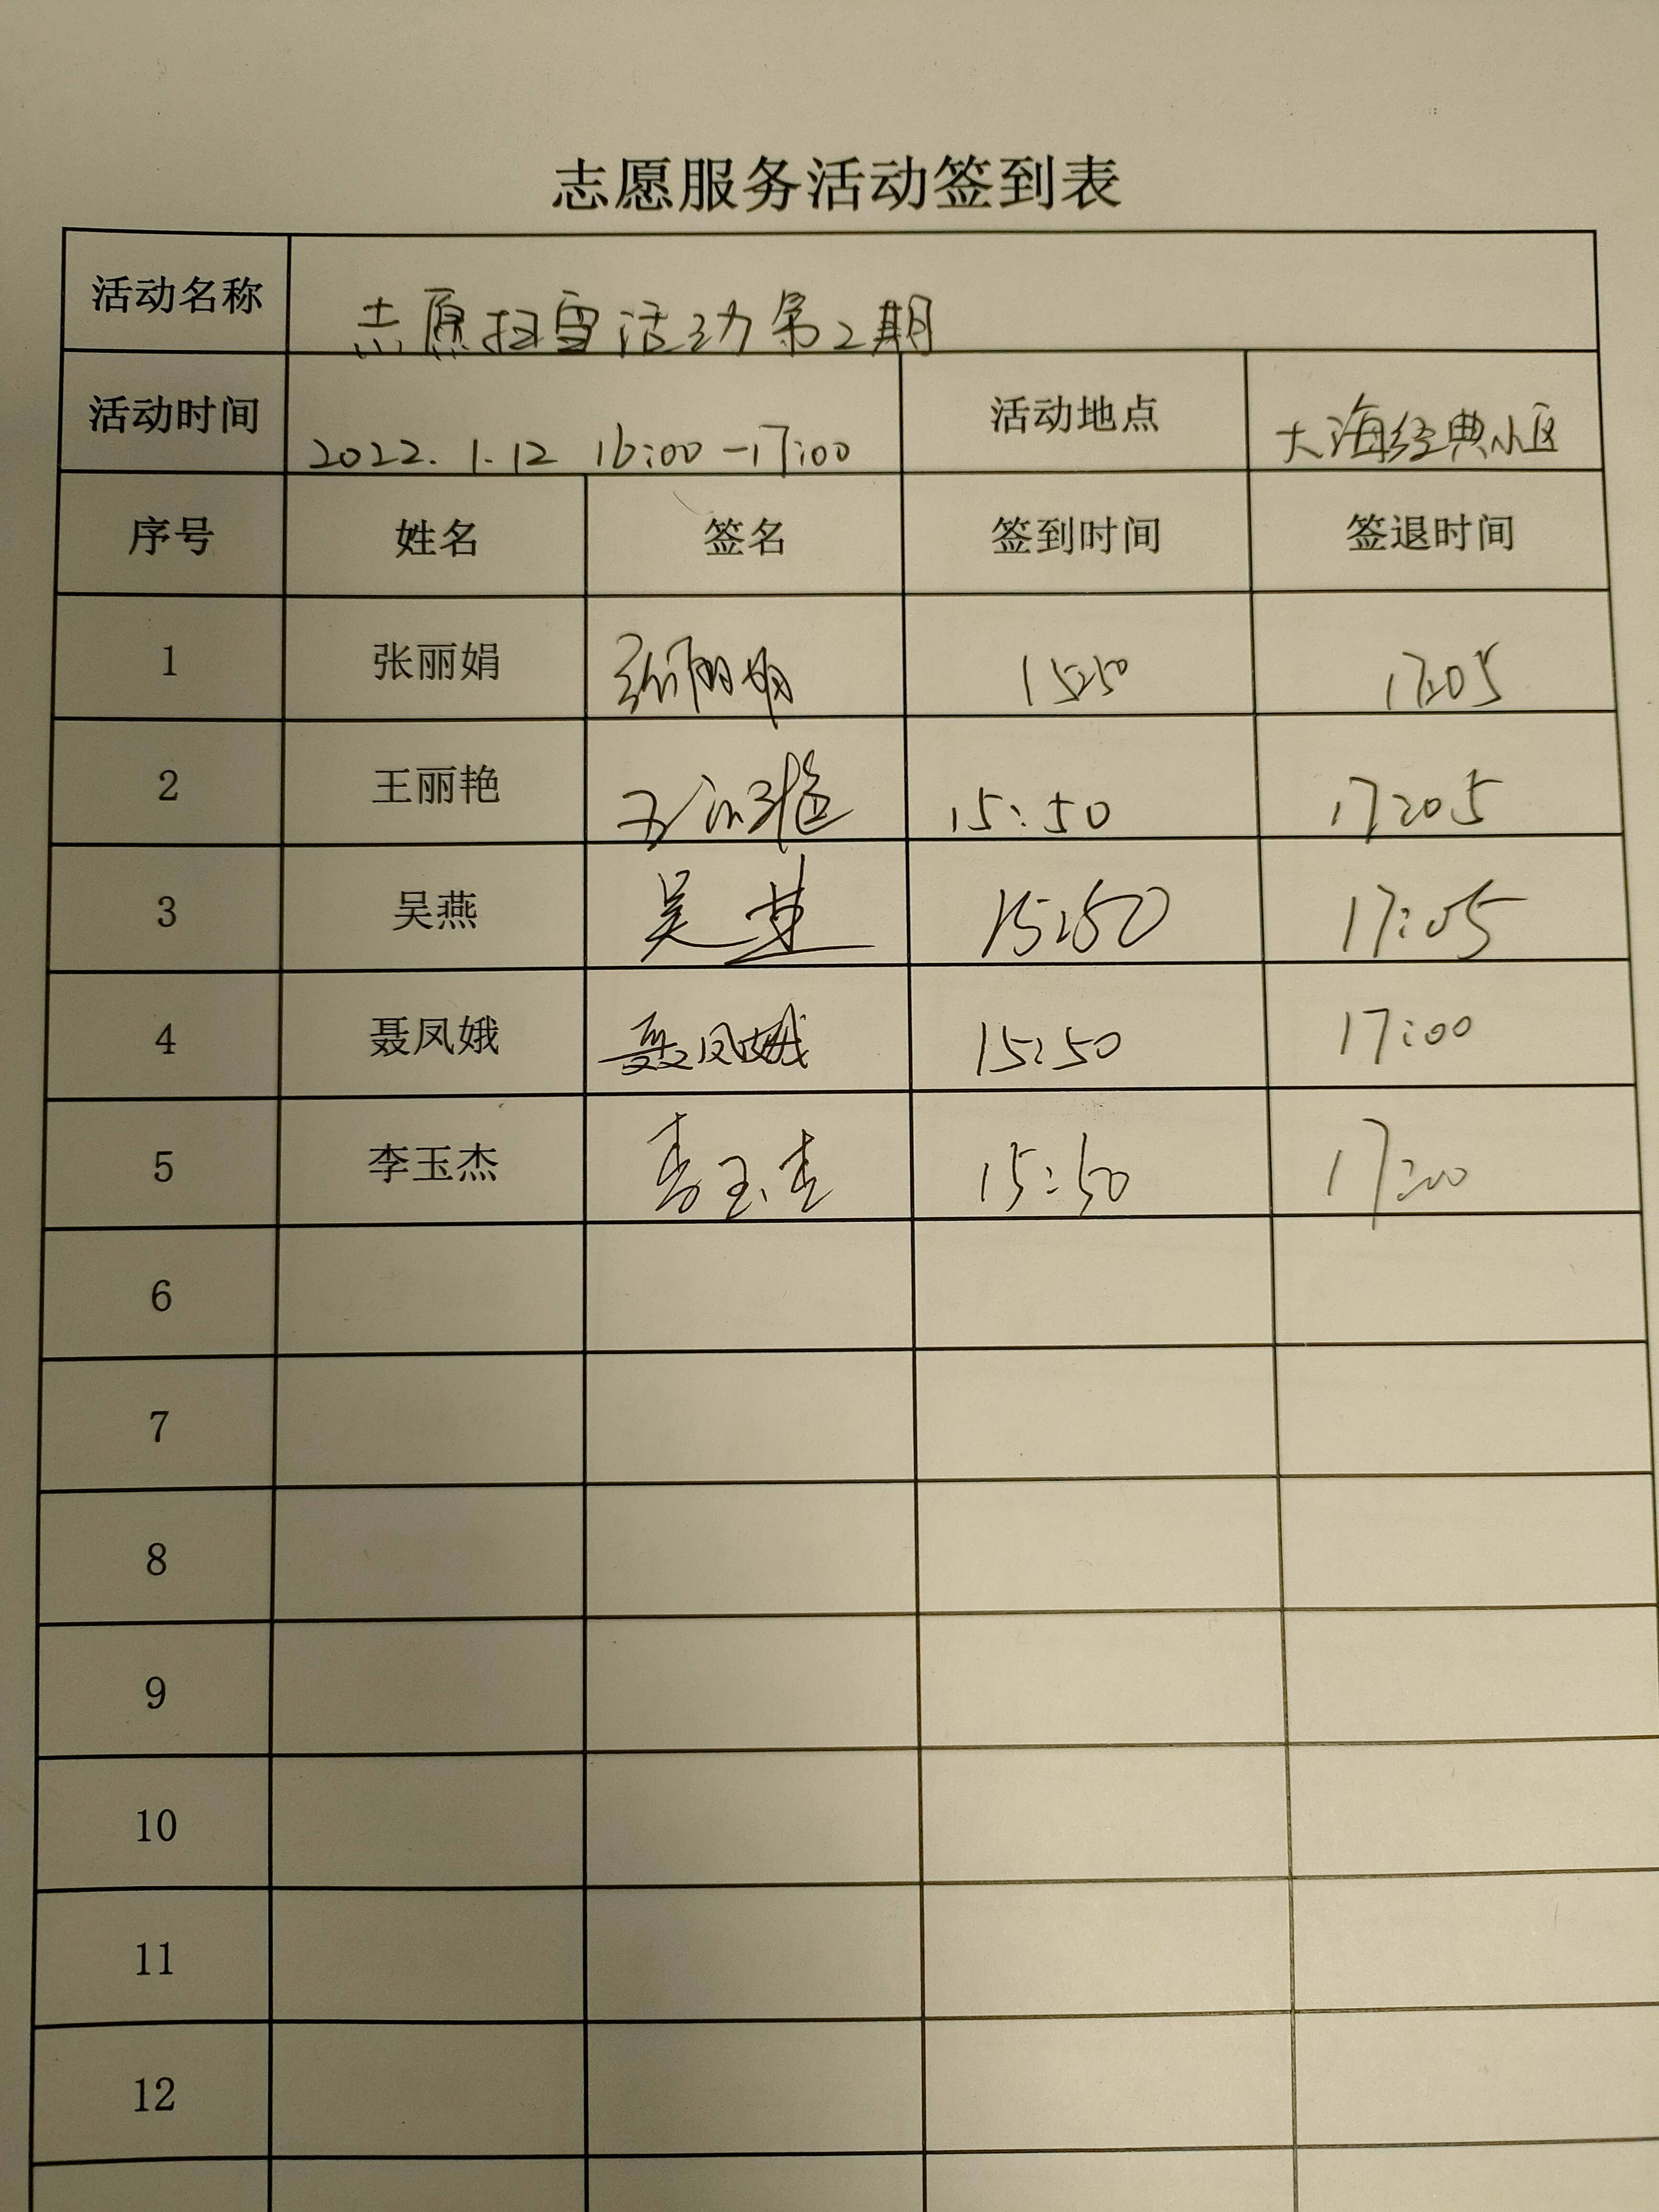 志愿服务活动签到表
活动名称 志愿扫雪活动第2期
活动时间 2022.1.12 16:00-17:00 活动地点 大海经典小区
序号 姓名 签名 签到时间 签退时间
1 张丽娟 张丽娟 15:50 17:05
2 王丽艳 王丽艳 15:50 17:05
3 吴燕 吴燕 15:50 17:05
4 聂凤娥 聂凤娥 15:50 17:00
5 李玉杰 李玉杰 15:50 17:00
6
7
8
9
10
11
12